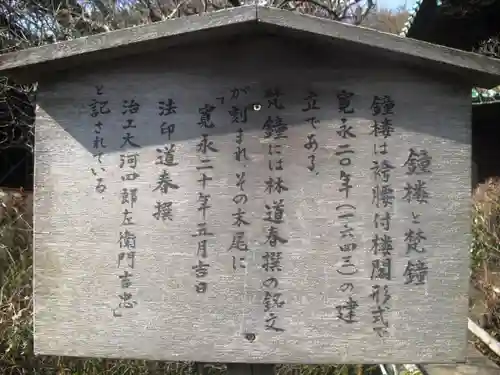 鐘楼と梵鐘
鐘楼は袴腰付楼閣形式で
寛永二〇年(一六四三)の建
立である。
梵鐘には林道春撰の銘文
が刻まれ その末尾に
「寛永二十年五月吉日
法印道春撰
治工大河四郎左衛門吉忠」
と記されている。